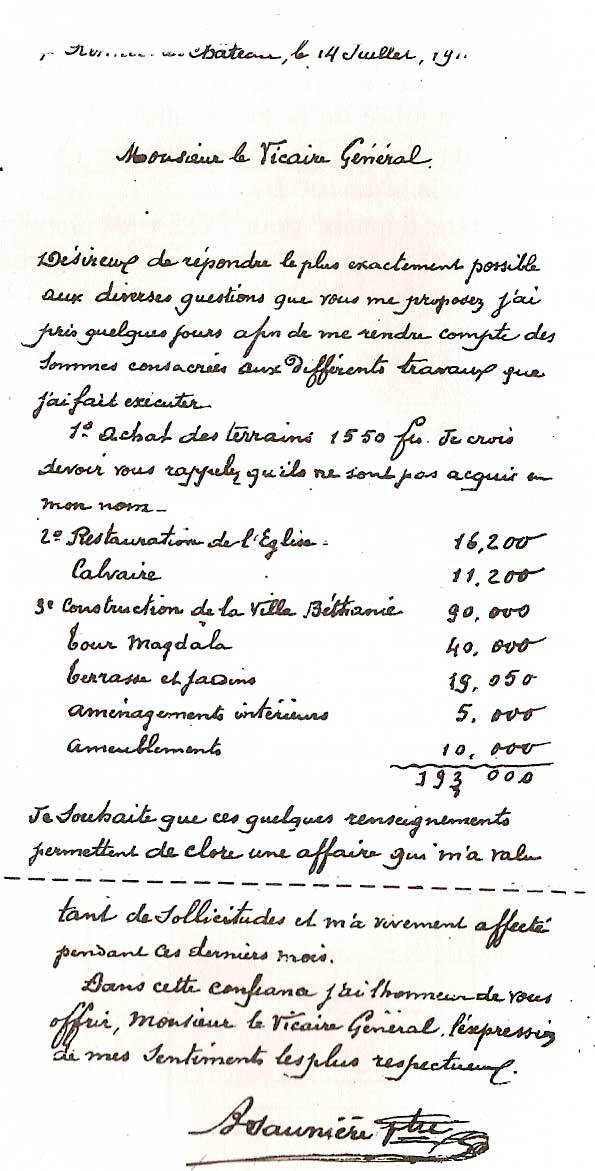 Château, le 14 Juillet, 19
Monsieur le Vicaire Général.
Désireux de répondre le plus exactement possible
aux diverses questions que vous me proposez j'ai
pris quelques jours afin de me rendre compte des
sommes consacrées aux différents travaux que
j'ai fait exécuter
1º Achat des terrains 1550 frs. Je crois
devoir vous rappeler qu'ils ne sont pas acquis en
mon nom –
2º Restauration de l'Eglise - 16,200
Calvaire 11.200
3º Construction de la Villa Béthanie 90.000
tour Magdala 40.000
terrasse et jardins 19.050
aménagements intérieurs 5.000
ameublements 10.000
193 000
Je souhaite que ces quelques renseignements
permettent de clore une affaire qui m'a valu
tant de sollicitudes et m'a vivement affecté
pendant ces derniers mois.
Dans cette confiance j'ai l'honneur de vous
offrir, Monsieur le Vicaire Général, l'expression
de mes sentiments les plus respectueux.
BSaunière ptre